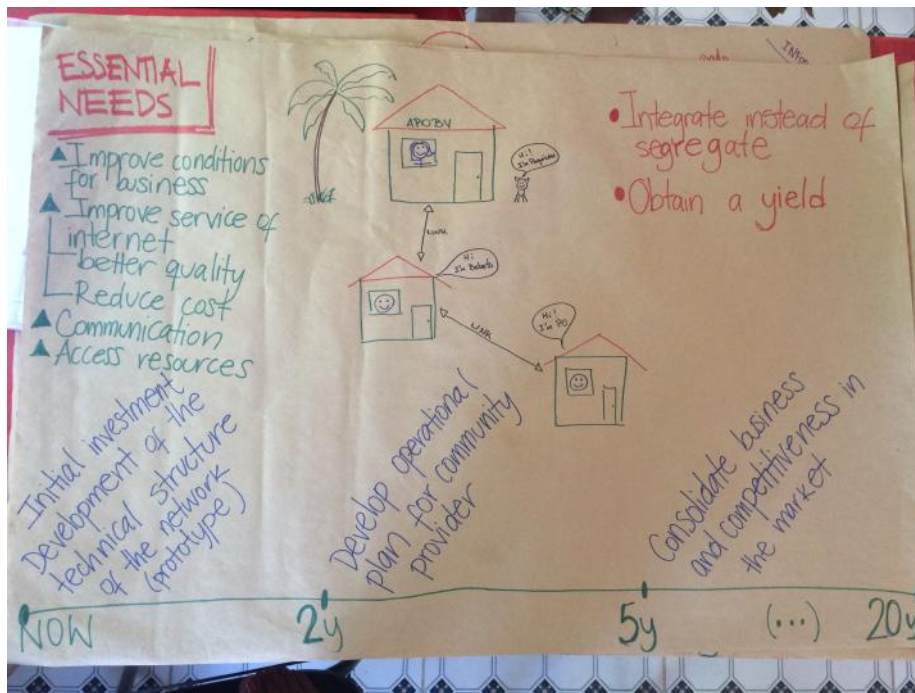 ESSENTIAL
NEEDS
Improve conditions
for business
Improve service of
internet
better quality
Reduce cost
Communication
Access resources
Hi!
I'm
LINK
Hi
I'm
LINK
Hi!
I'm PO
• Integrate instead of
segregate
• Obtain a yield
Initial investment
Development of the
technical structure
of the network
(prototype)
Develop operational
plan for community
provider
Consolidate business
and competitiveness in
the market
NOW
2y
5y
(...)
20y